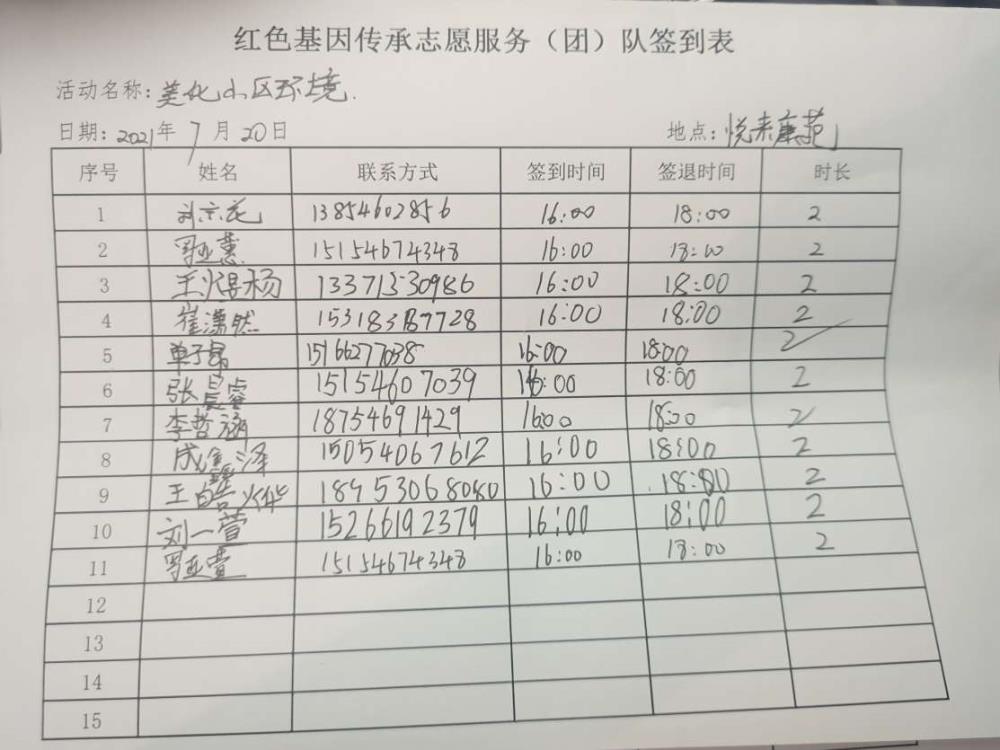 红色基因传承志愿服务（团）队签到表
活动名称：美化小区环境.
日期：2021年7月20日 地点：悦来康苑
序号 姓名 联系方式 签到时间 签退时间 时长
1 刘宗花 13854602856 16:00 18:00 2
2 15154674348 16:00 18:00 2
3 王煜杨 13371530986 16:00 18:00 2
4 崔潇然 15318387728 16:00 18:00 2
5 单子昂 15166277038 16:00 18:00 2
6 张昊睿 15154607039 16:00 18:00 2
7 李哲涵 18754691429 16:00 18:00 2
8 15054067612 16:00 18:00 2
9 18953068080 16:00 18:00 2
10 刘一萱 15266192379 16:00 18:00 2
11 15154674348 16:00 18:00 2
12
13
14
15